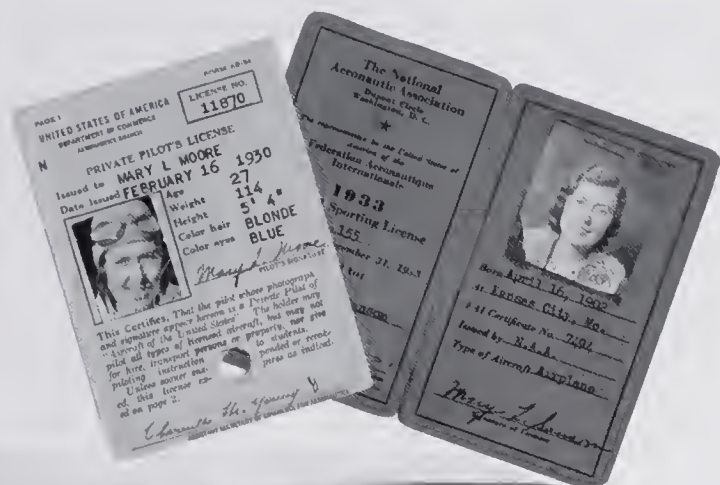 PAGE 1
UNITED STATES OF AMERICA
DEPARTMENT OF COMMERCE
AERONAUTICS BRANCH
LICENSE NO.
11870
N
PRIVATE PILOT'S LICENSE
Issued to MARY L MOORE
Date Issued FEBRUARY 16 1930
Age 27
Weight 114
Height 5' 4"
Color hair BLONDE
Color eyes BLUE
PILOT'S SIGNATURE
This Certifies, That the pilot whose photograph
and signature appear hereon is a Private Pilot of
"Aircraft of the United States". The holder may
pilot all types of licensed aircraft, but may not
for hire, transport persons or property, nor give
piloting instruction to students.
Unless sooner suspended or revok-
ed, this license expires as indicat-
ed on page 2.
ASSISTANT SECRETARY OF COMMERCE FOR AERONAUTICS
The National
Aeronautic Association
Dupont Circle
Washington, D. C.
representative in the United States of
America of the
Federation Aeronautique
Internationale
1933
Sporting License
155
31, 1933
Born April 16, 1902
At Kansas City, Mo.
Certificate No.
Issued by N.A.A.
Type of Aircraft Airplane